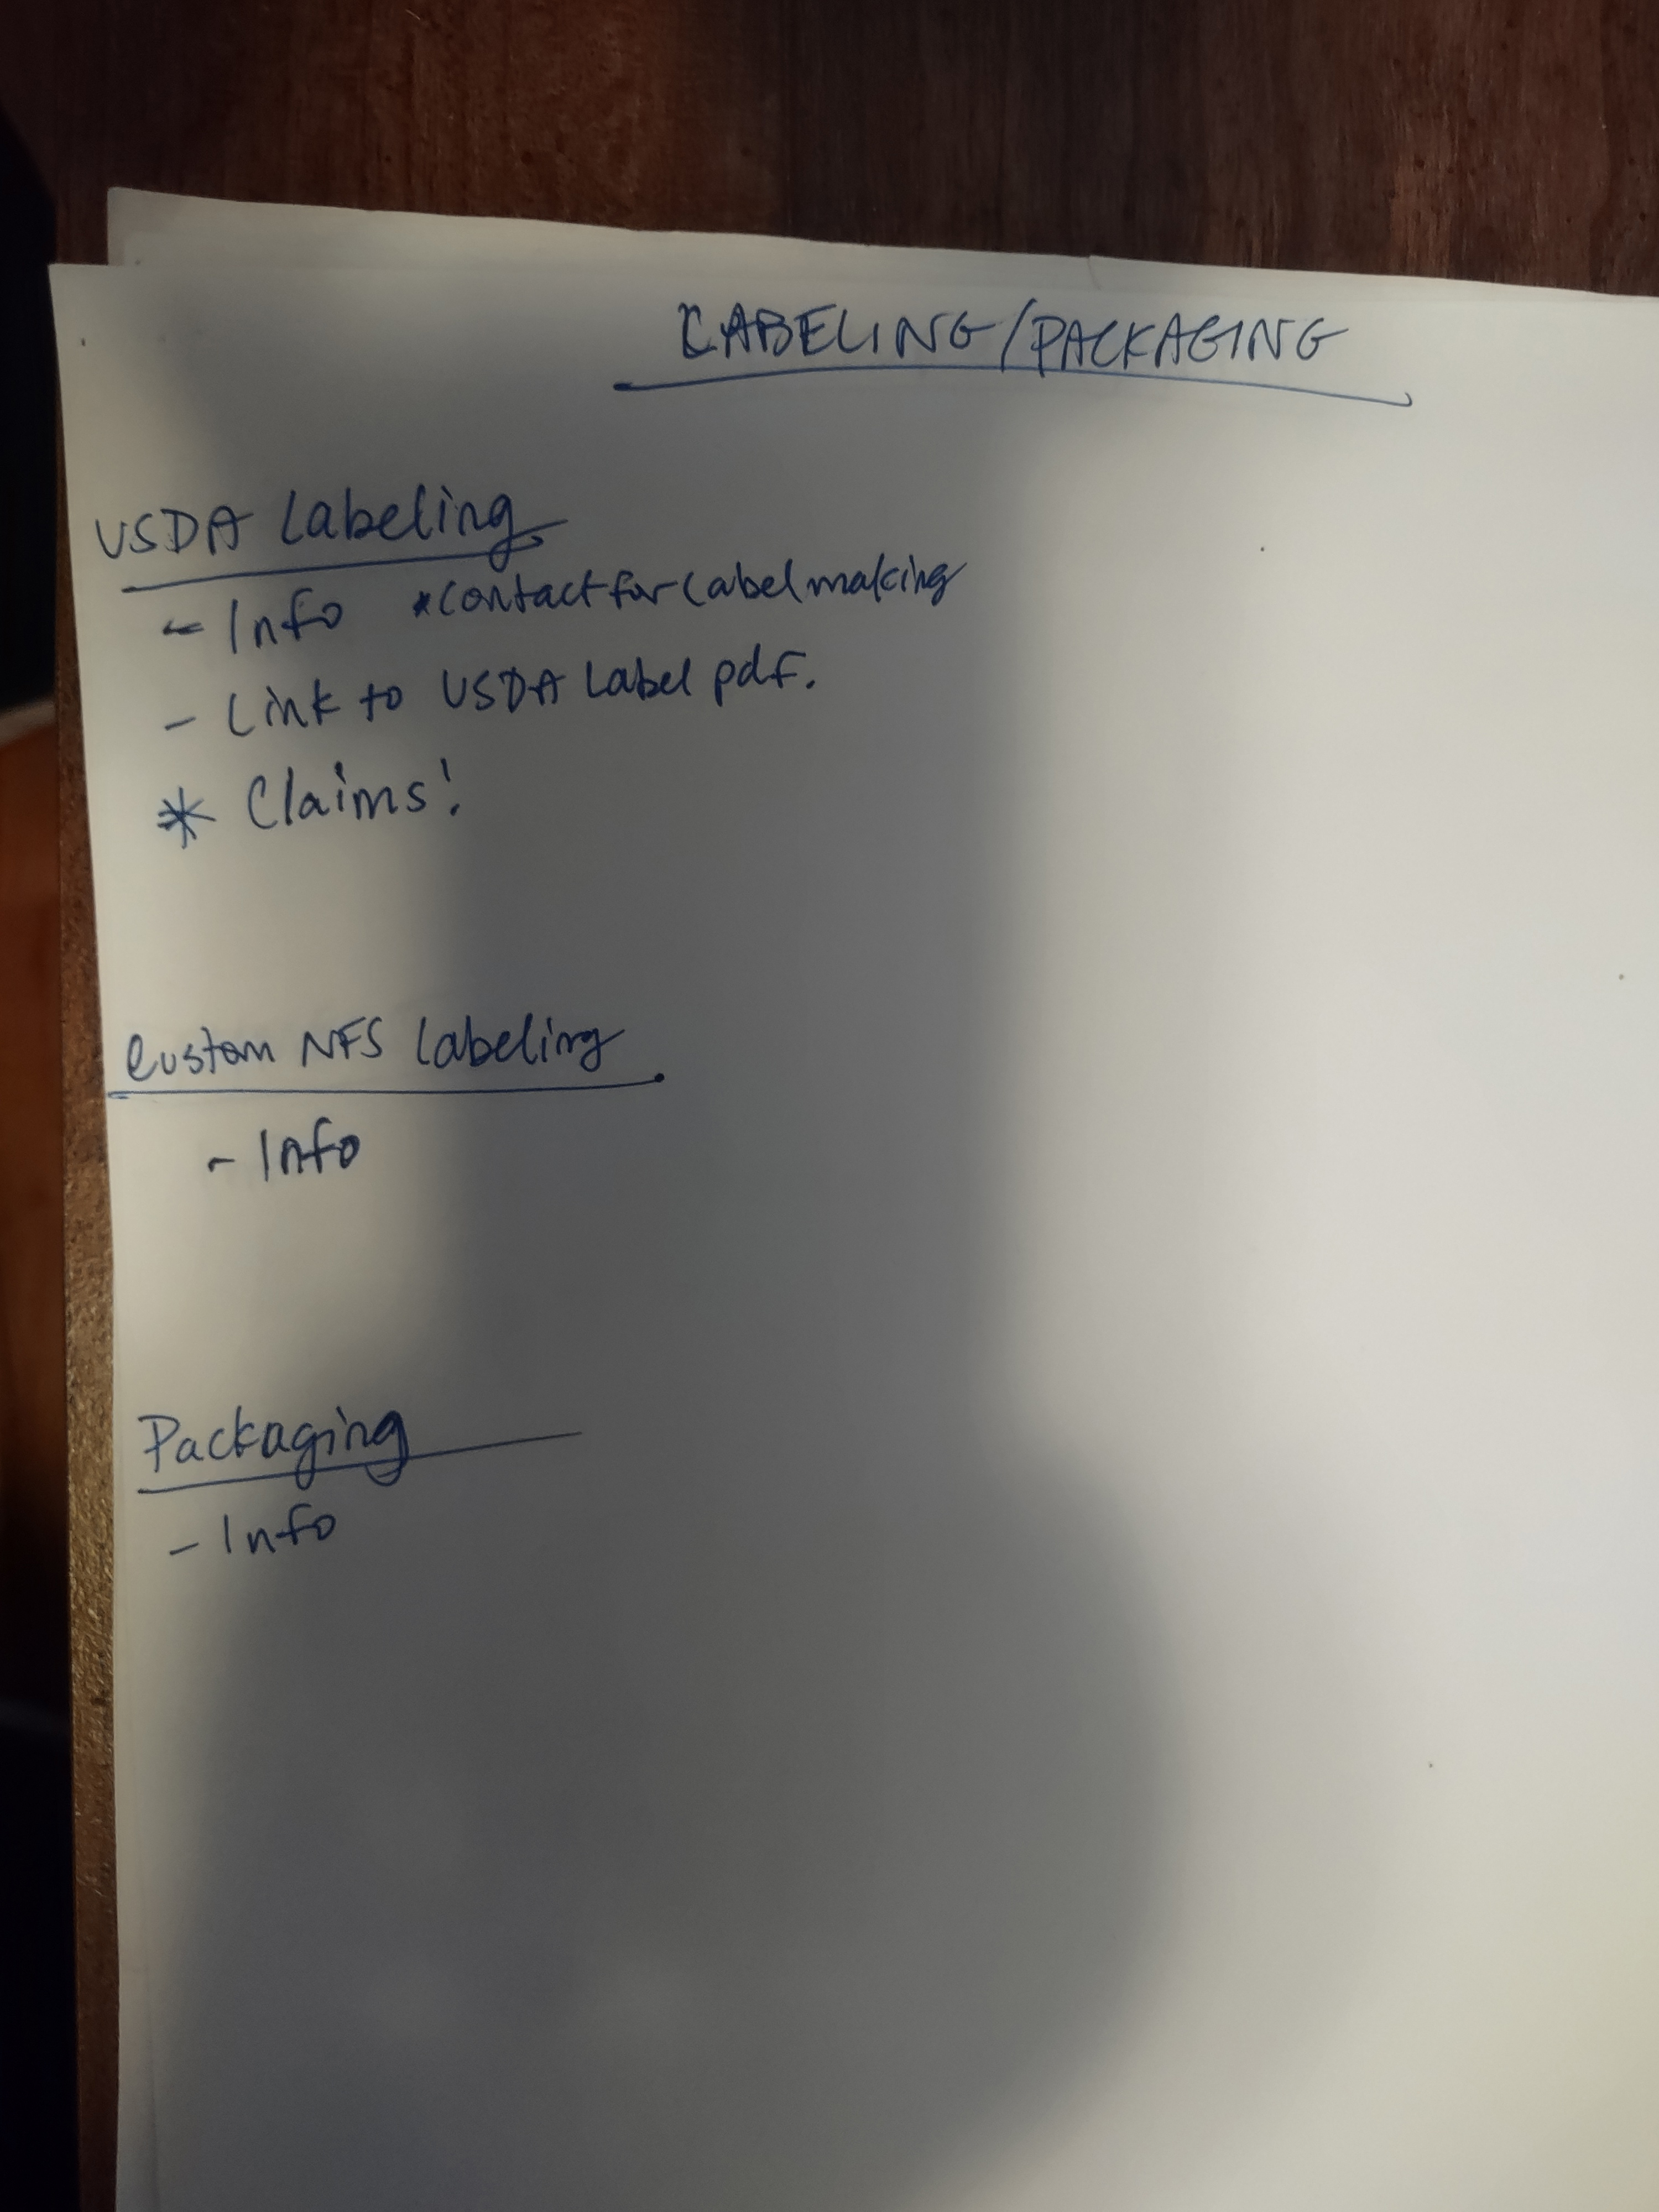 LABELING/PACKAGING
USDA Labeling
- Info *contact for label making
- Link to USDA Label pdf.
* Claims!
Custom NFS Labeling
- Info
Packaging
- Info